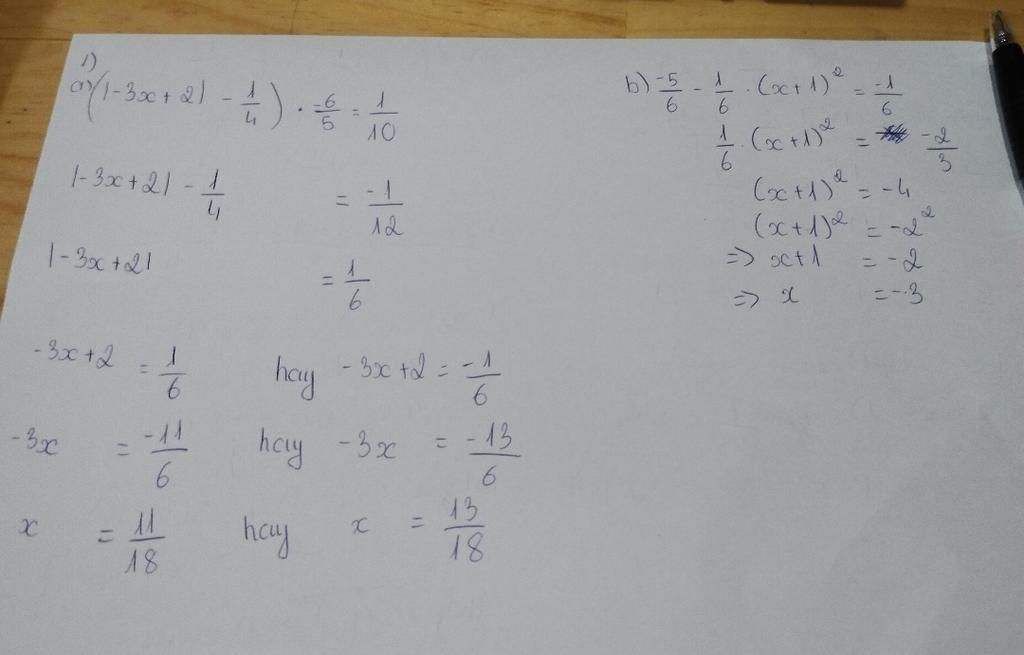 1)
a) (|-3x+2| - 1/4) . -6/5 = 1/10
|-3x+2| - 1/4 = -1/12
|-3x+2| = 1/6
-3x+2 = 1/6 hay -3x+2 = -1/6
-3x = -11/6 hay -3x = -13/6
x = 11/18 hay x = 13/18
b) -5/6 - 1/6 . (x+1)² = -1/6
1/6 . (x+1)² = -2/3
(x+1)² = -4
(x+1)² = -2²
=> x+1 = -2
=> x = -3